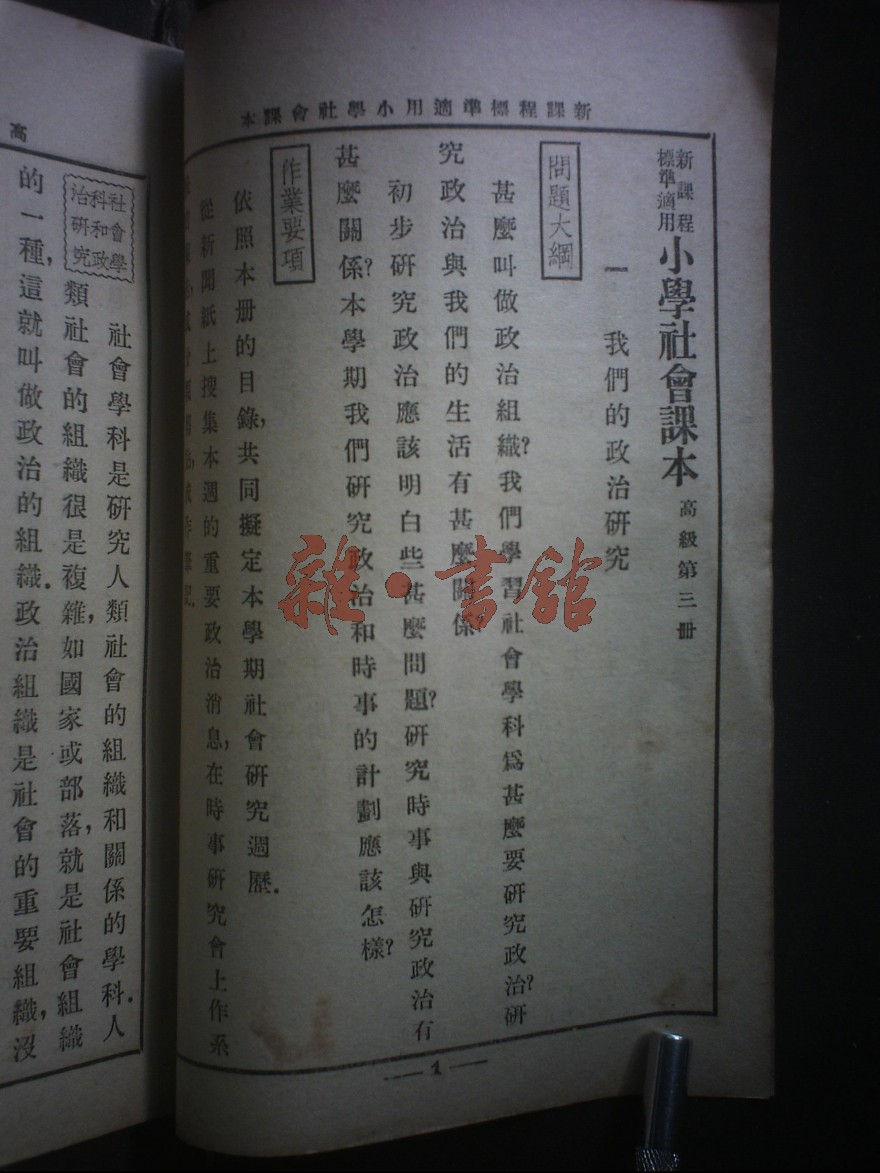 新課程標準適用小學社會課本
新課程
標準適用
小學社會課本
高級第三冊
一 我們的政治研究
問題大綱
甚麼叫做政治組織?我們學習社會學科爲甚麼要研究政治?研
究政治與我們的生活有甚麼關係?
初步研究政治應該明白些甚麼問題?研究時事與研究政治有
甚麼關係?本學期我們研究政治和時事的計劃應該怎樣?
作業要項
依照本册的目錄,共同擬定本學期社會研究週歷.
從新聞紙上搜集本週的重要政治消息,在時事研究會上作系
1
雜·書館
高
社會學
科和政
治研究
社會學科是研究人類社會的組織和關係的學科.人
類社會的組織很是複雜,如國家或部落,就是社會組織
的一種,這就叫做政治的組織.政治組織是社會的重要組織,沒